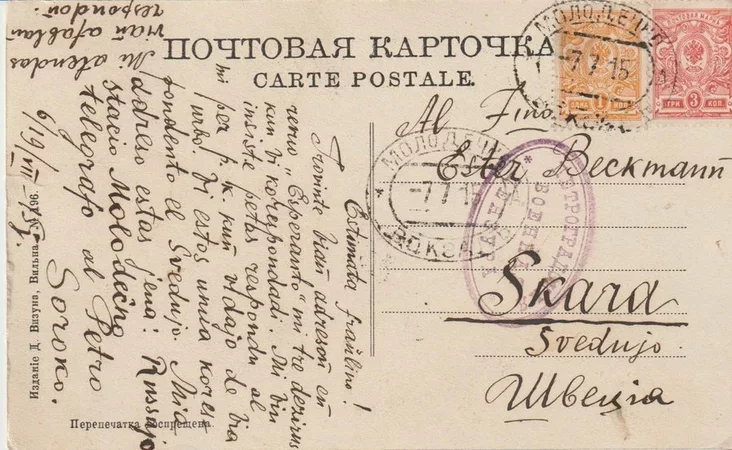 ПОЧТОВАЯ КАРТОЧКА
CARTE POSTALE.
Estimata fraŭlino!
Trovint Vian adreson en
revuo „Esperanto" mi tre deziras
kun Vi korespondadi. Mi Vin
insiste petas respondu al
mi per p.k. kun vidajo de Via
urbo. Vi estos unua kores-
pondento el Svedujo. Mia
adreso estas jena: Russujo
stacio Molodeĉno
telegrafo al Petro
Soroko.
6/19/VII 15j.
Mi atendas
Vian afablan
respondon.
Al Fino
Ester Beckmann
Skara
Svedujo
Швецiя
МОЛОДЕЧНО
-7 7 15
ВОКЗАЛ
МОЛОДЕЧНО
-7 7 15
ВОКЗАЛ
ПЕТРОГРАД
ВОЕННА
ЦЕНЗУРА
ОДНА 1 КОП
ПОЧТОВАЯ МАРКА
ТРИ 3 КОП
Изданiе Д. Визуна, Вильна. № 196
Перепечатка воспрещена.